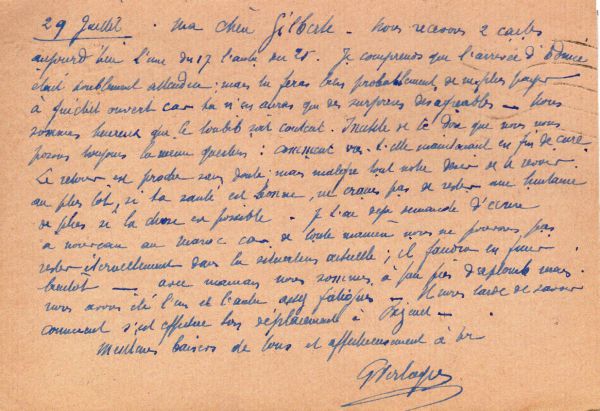 29 Juillet . Ma chère Gilberte . Nous recevons 2 cartes
aujourd'hui l'une du 17 l'autre du 20. Je comprends que l'arrivée d'
était doublement attendue ; mais tu feras bien probablement de ne plus payer
à guichet ouvert car tu n'en auras que des surprises désagréables – Nous
sommes heureux que le toubib soit content. Inutile de te dire que nous nous
posons toujours la même question : comment va-t-elle maintenant en fin de cure
Le retour est proche sans doute ; mais malgré tout notre désir de te revoir
au plus tôt, si ta santé est bonne, ne crains pas de rester une huitaine
de plus si la chose est possible . Je t'ai déjà demandé d'écrire
à nouveau au Maroc car de toute manière nous ne pouvons pas
rester éternellement dans la situation actuelle ; il faudra en finir
bientôt — avec maman nous sommes à peu près d'aplomb mais
nous avons été l'un et l'autre assez fatigués – Il nous tarde de savoir
comment s'est effectué ton déplacement à
Meilleurs baisers de tous et affectueusement à toi